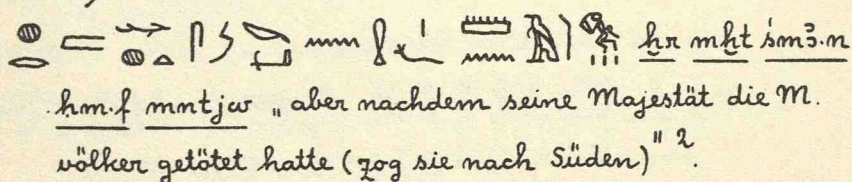 𓐍𓂋𓐛𓆱𓐍𓏏𓋴 𓈖𓍛𓆑 𓏠𓈖 ḫr mḫt śmꜣ.n
ḥm.f mntjw „aber nachdem seine Majestät die M.
völker getötet hatte (zog sie nach Süden)" 2.